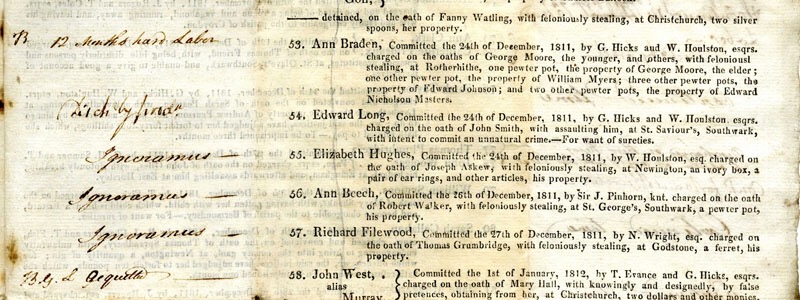 detained, on the oath of Fanny Watling, with feloniously stealing, at Christchurch, two silver
spoons, her property.
B 12 Months hard Labor
53. Ann Braden, Committed the 24th of December, 1811, by G. Hicks and W. Houlston, esqrs.
charged on the oaths of George Moore, the younger, and others, with felonious!
stealing, at Rotherhithe, one pewter pot, the property of George Moore, the elder;
one other pewter pot, the property of William Myers; three other pewter pots, the
property of Edward Johnson; and two other pewter pots, the property of Edward
Nicholson Masters.
Disch by
54. Edward Long, Committed the 24th of December, 1811, by G. Hicks and W. Houlston esqrs.
charged on the oath of John Smith, with assaulting him, at St. Saviour's, Southwark,
with intent to commit an unnatural crime.—For want of sureties.
Ignoramus —
55. Elizabeth Hughes, Committed the 24th of December, 1811, by W. Houlston, esq. charged on
the oath of Joseph Askew, with feloniously stealing, at Newington, an ivory box, a
pair of ear rings, and other articles, his property.
Ignoramus —
56. Ann Beech, Committed the 26th of December, 1811, by Sir J. Pinhorn, knt. charged on the oath
of Robert Walker, with feloniously stealing, at St. George's, Southwark, a pewter pot,
his property.
Ignoramus —
57. Richard Filewood, Committed the 27th of December, 1811, by N. Wright, esq. charged on
the oath of Thomas Grumbridge, with feloniously stealing, at Godstone, a ferret, his
property.
Acquitted —
58. John West, Committed the 1st of January, 1812, by T. Evance and G. Hicks, esqrs.
alias charged on the oath of Mary Hall, with knowingly and designedly, by false
Murray, pretences, obtaining from her, at Christchurch, two dollars and other monies,